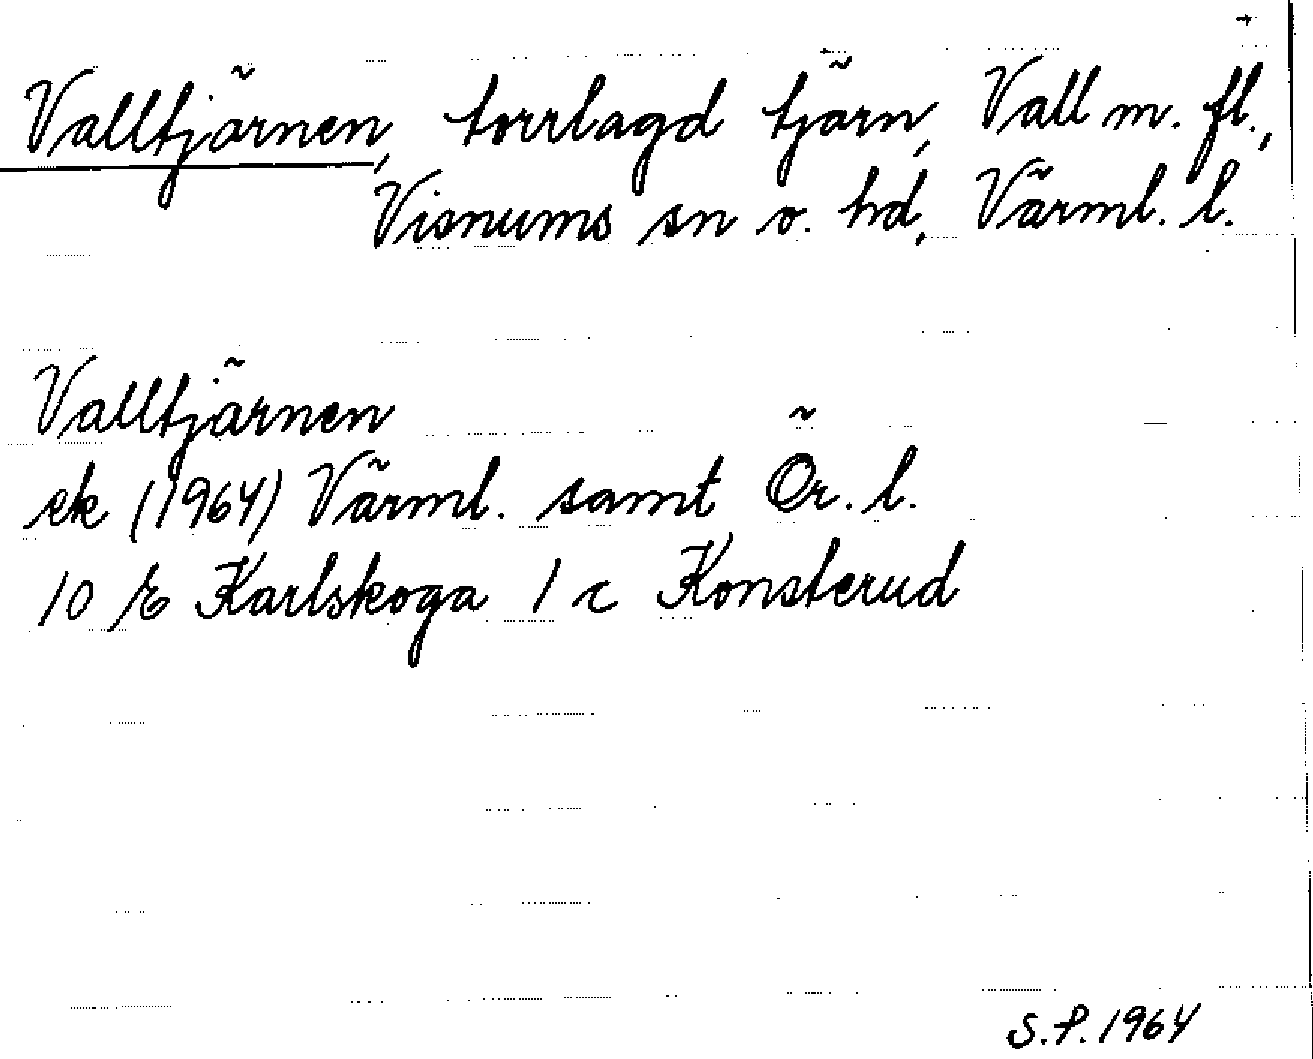 Valltjärnen, torrlagd tjärn, Vall m. fl.,
Visnums sn o. hd, Värml. l.
Valltjärnen
ek (1964) Värml. samt Ör. l.
10 E Karlskoga 1 c Konsterud
S.P. 1964